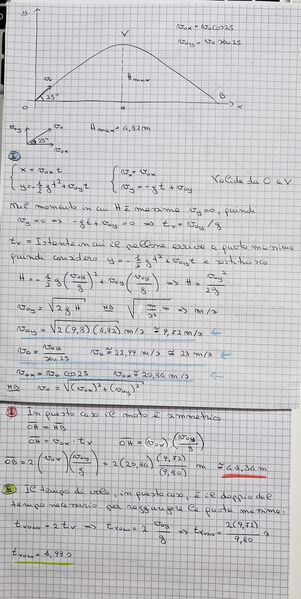 y
V
v₀ₓ = v₀ cos 25
v₀y = v₀ sin 25
v₀
Hmax
25°
O
H
B
x
v₀y
v₀
25°
v₀ₓ
Hmax = 4,82 m
I
{ x = v₀ₓ t
{ y = -½ g t² + v₀y t
{ vₓ = v₀ₓ
{ vy = -gt + v₀y
Valide da O a V
Nel momento in cui H è massima vy = 0, quindi
vy = 0 => -gt + v₀y = 0 => tv = v₀y / g
tv = Istante in cui il pallone arriva a quota massima
quindi considero y = -½ g t² + v₀y t e sostituisco
H = -½ g (v₀y/g)² + v₀y (v₀y/g) => H = v₀y²/2g
v₀y = √2gH
=> m/s
v₀y = √2(9,8)(4,82) m/s ≅ 9,72 m/s
v₀ = v₀y / sin 25 v₀ ≅ 22,99 m/s ≅ 23 m/s
v₀ₓ = v₀ cos 25 v₀ₓ ≅ 20,84 m/s
NB v₀ = √(v₀ₓ)² + (v₀y)²
II In questo caso il moto è simmetrico
OH = HB
OH = v₀ₓ · tv OH = (v₀ₓ) · (v₀y/g)
OB = 2 (v₀ₓ) (v₀y/g) = 2 (20,84) (9,72)/(9,80) m ≅ 41,34 m
III Il tempo di volo, in questo caso, è il doppio del
tempo necessario per raggiungere la quota massima:
tvolo = 2 tv => tvolo = 2 v₀y/g => tvolo = 2(9,72)/9,80 s
tvolo = 1,98 s